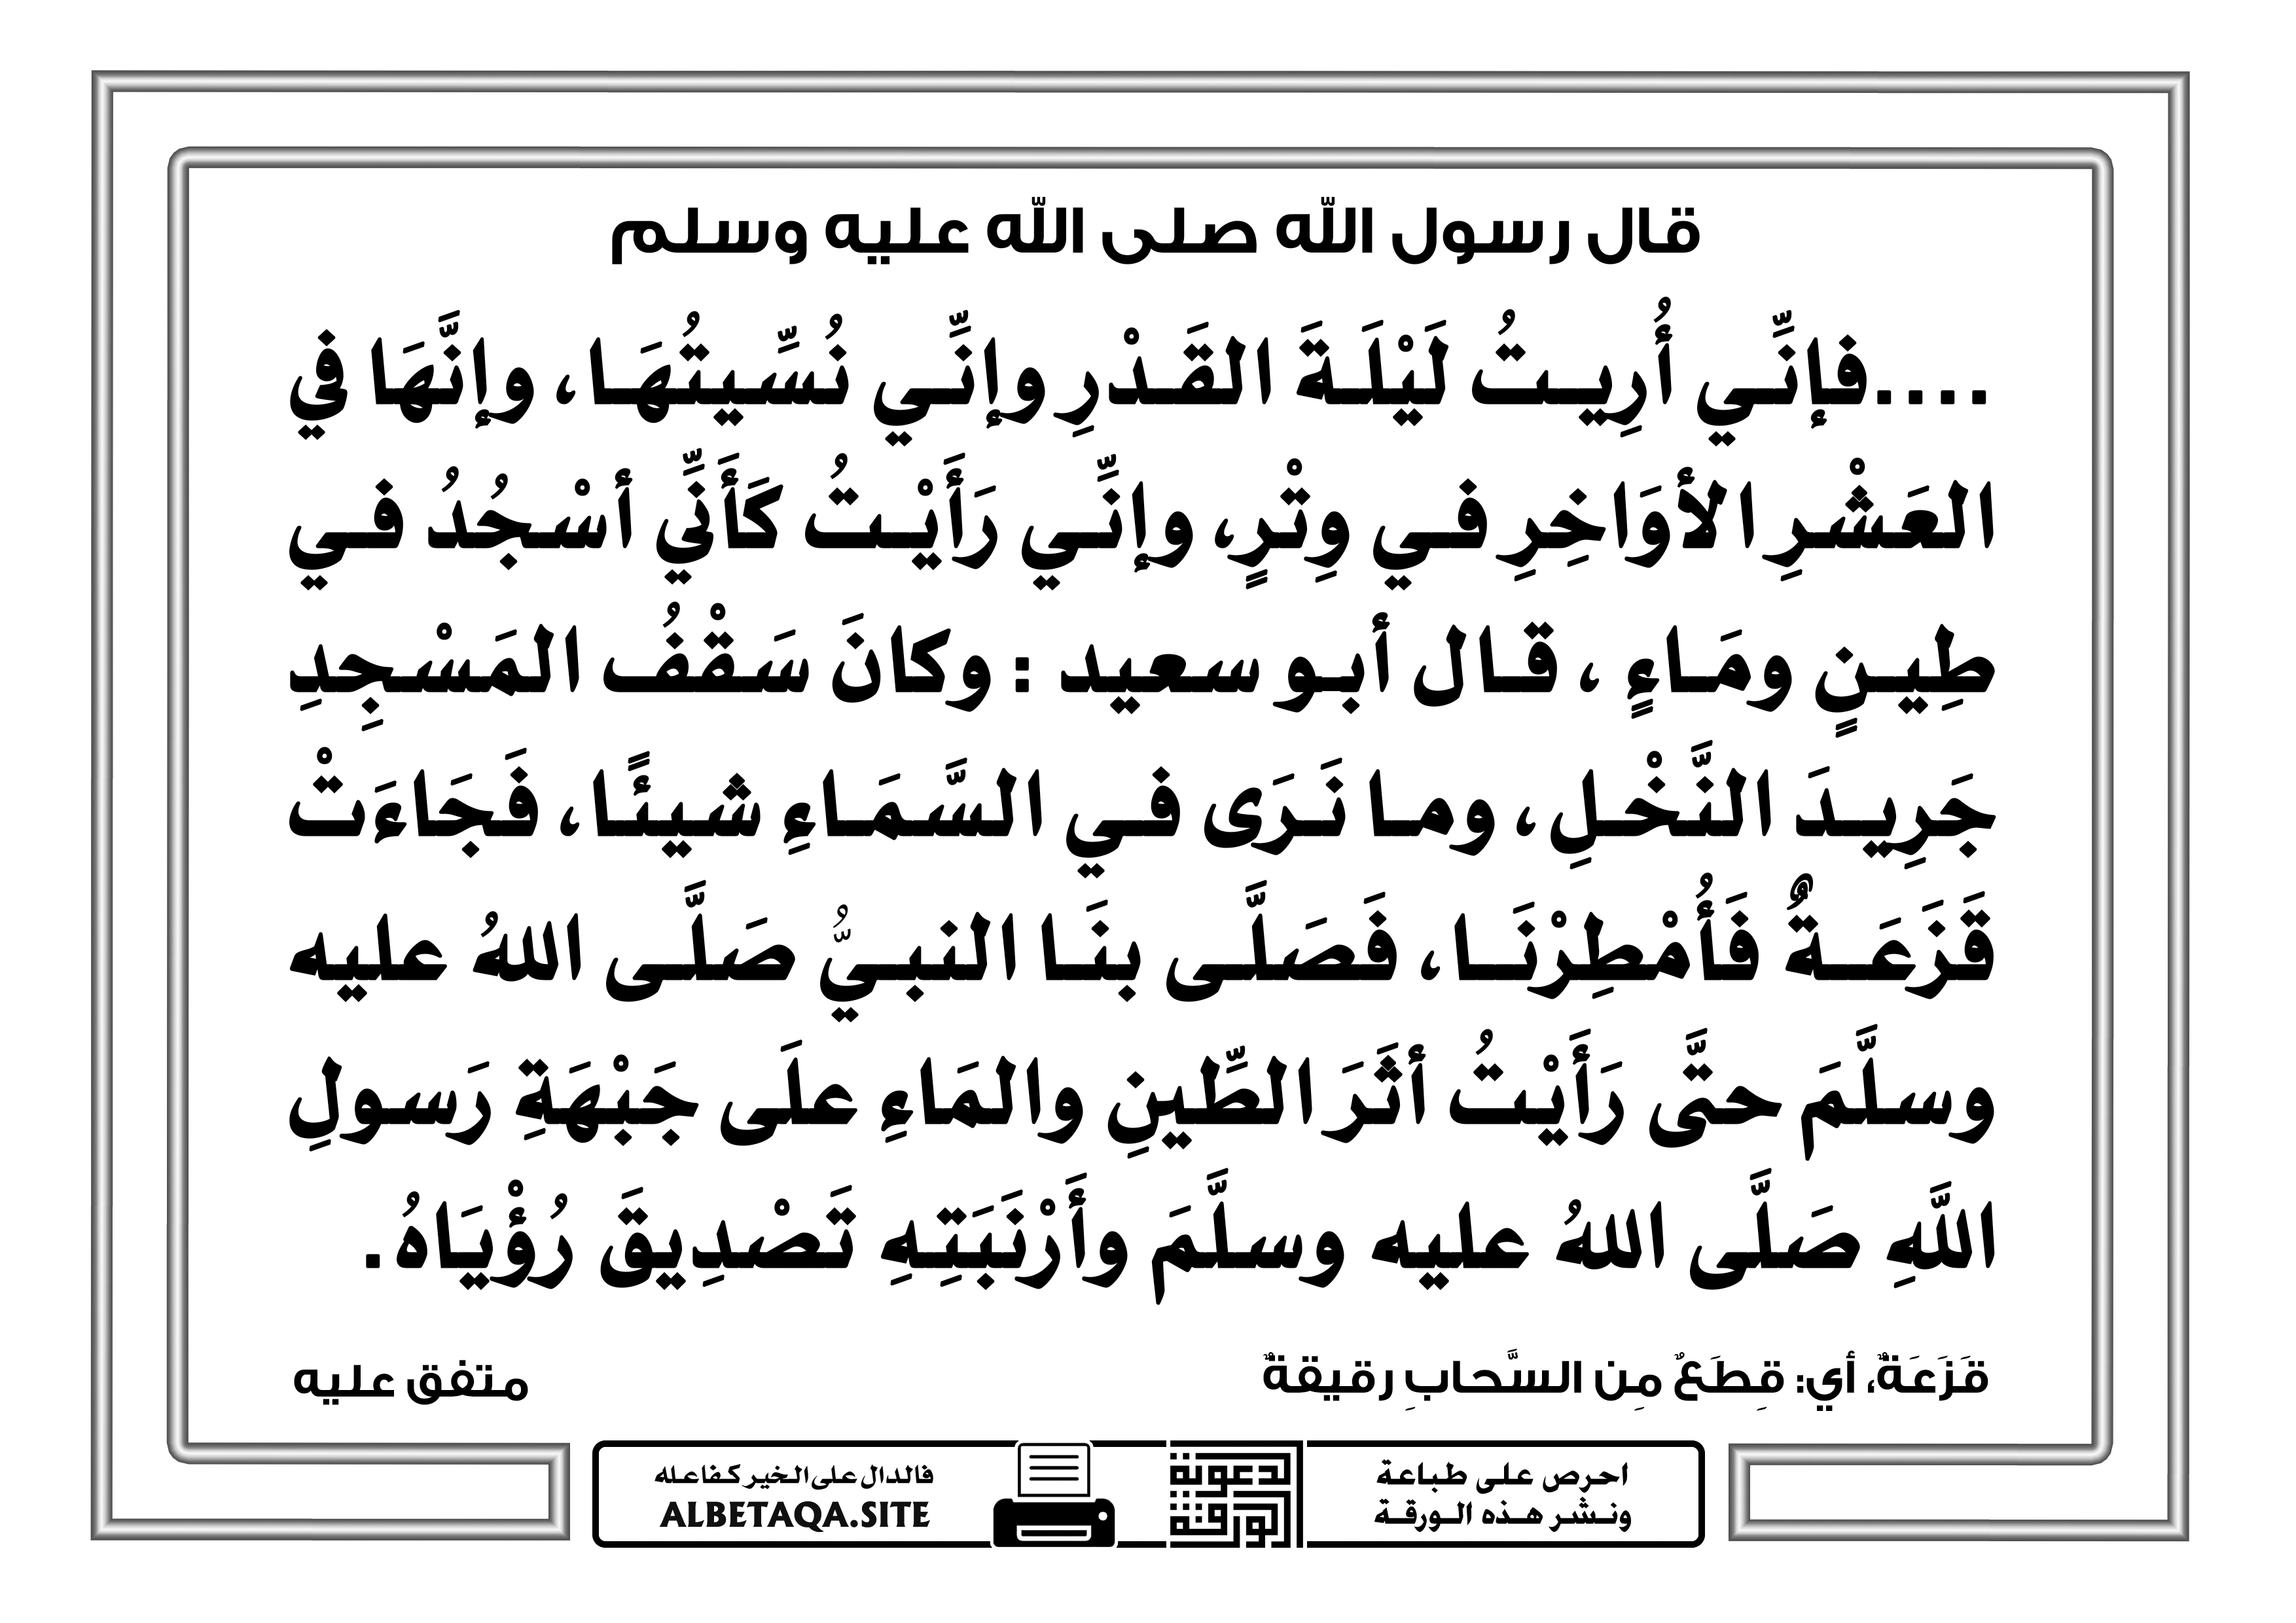 قال رسول الله صلى الله عليه وسلم
....فإنِّي أُرِيتُ لَيْلَةَ القَدْرِ وإنِّي نُسِّيتُهَا، وإنَّهَا في
العَشْرِ الأوَاخِرِ في وِتْرٍ، وإنِّي رَأَيْتُ كَأَنِّي أسْجُدُ في
طِينٍ ومَاءٍ ، قال أبو سعيد : وكانَ سَقْفُ المَسْجِدِ
جَرِيدَ النَّخْلِ، وما نَرَى في السَّمَاءِ شيئًا، فَجَاءَتْ
قَزَعَةٌ فَأُمْطِرْنَا، فَصَلَّى بنَا النبيُّ صَلَّى اللهُ عليه
وسلَّمَ حتَّى رَأَيْتُ أثَرَ الطِّينِ والمَاءِ علَى جَبْهَةِ رَسولِ
اللَّهِ صَلَّى اللهُ عليه وسلَّمَ وأَرْنَبَتِهِ تَصْدِيقَ رُؤْيَاهُ.
قَزَعَةٌ، أي: قِطَعٌ مِن السَّحابِ رقيقةٌ
متفق عليه
احرص على طباعة
ونشر هذه الورقة
لدعوية
الورقة
فالدال على الخير كفاعله
ALBETAQA.SITE